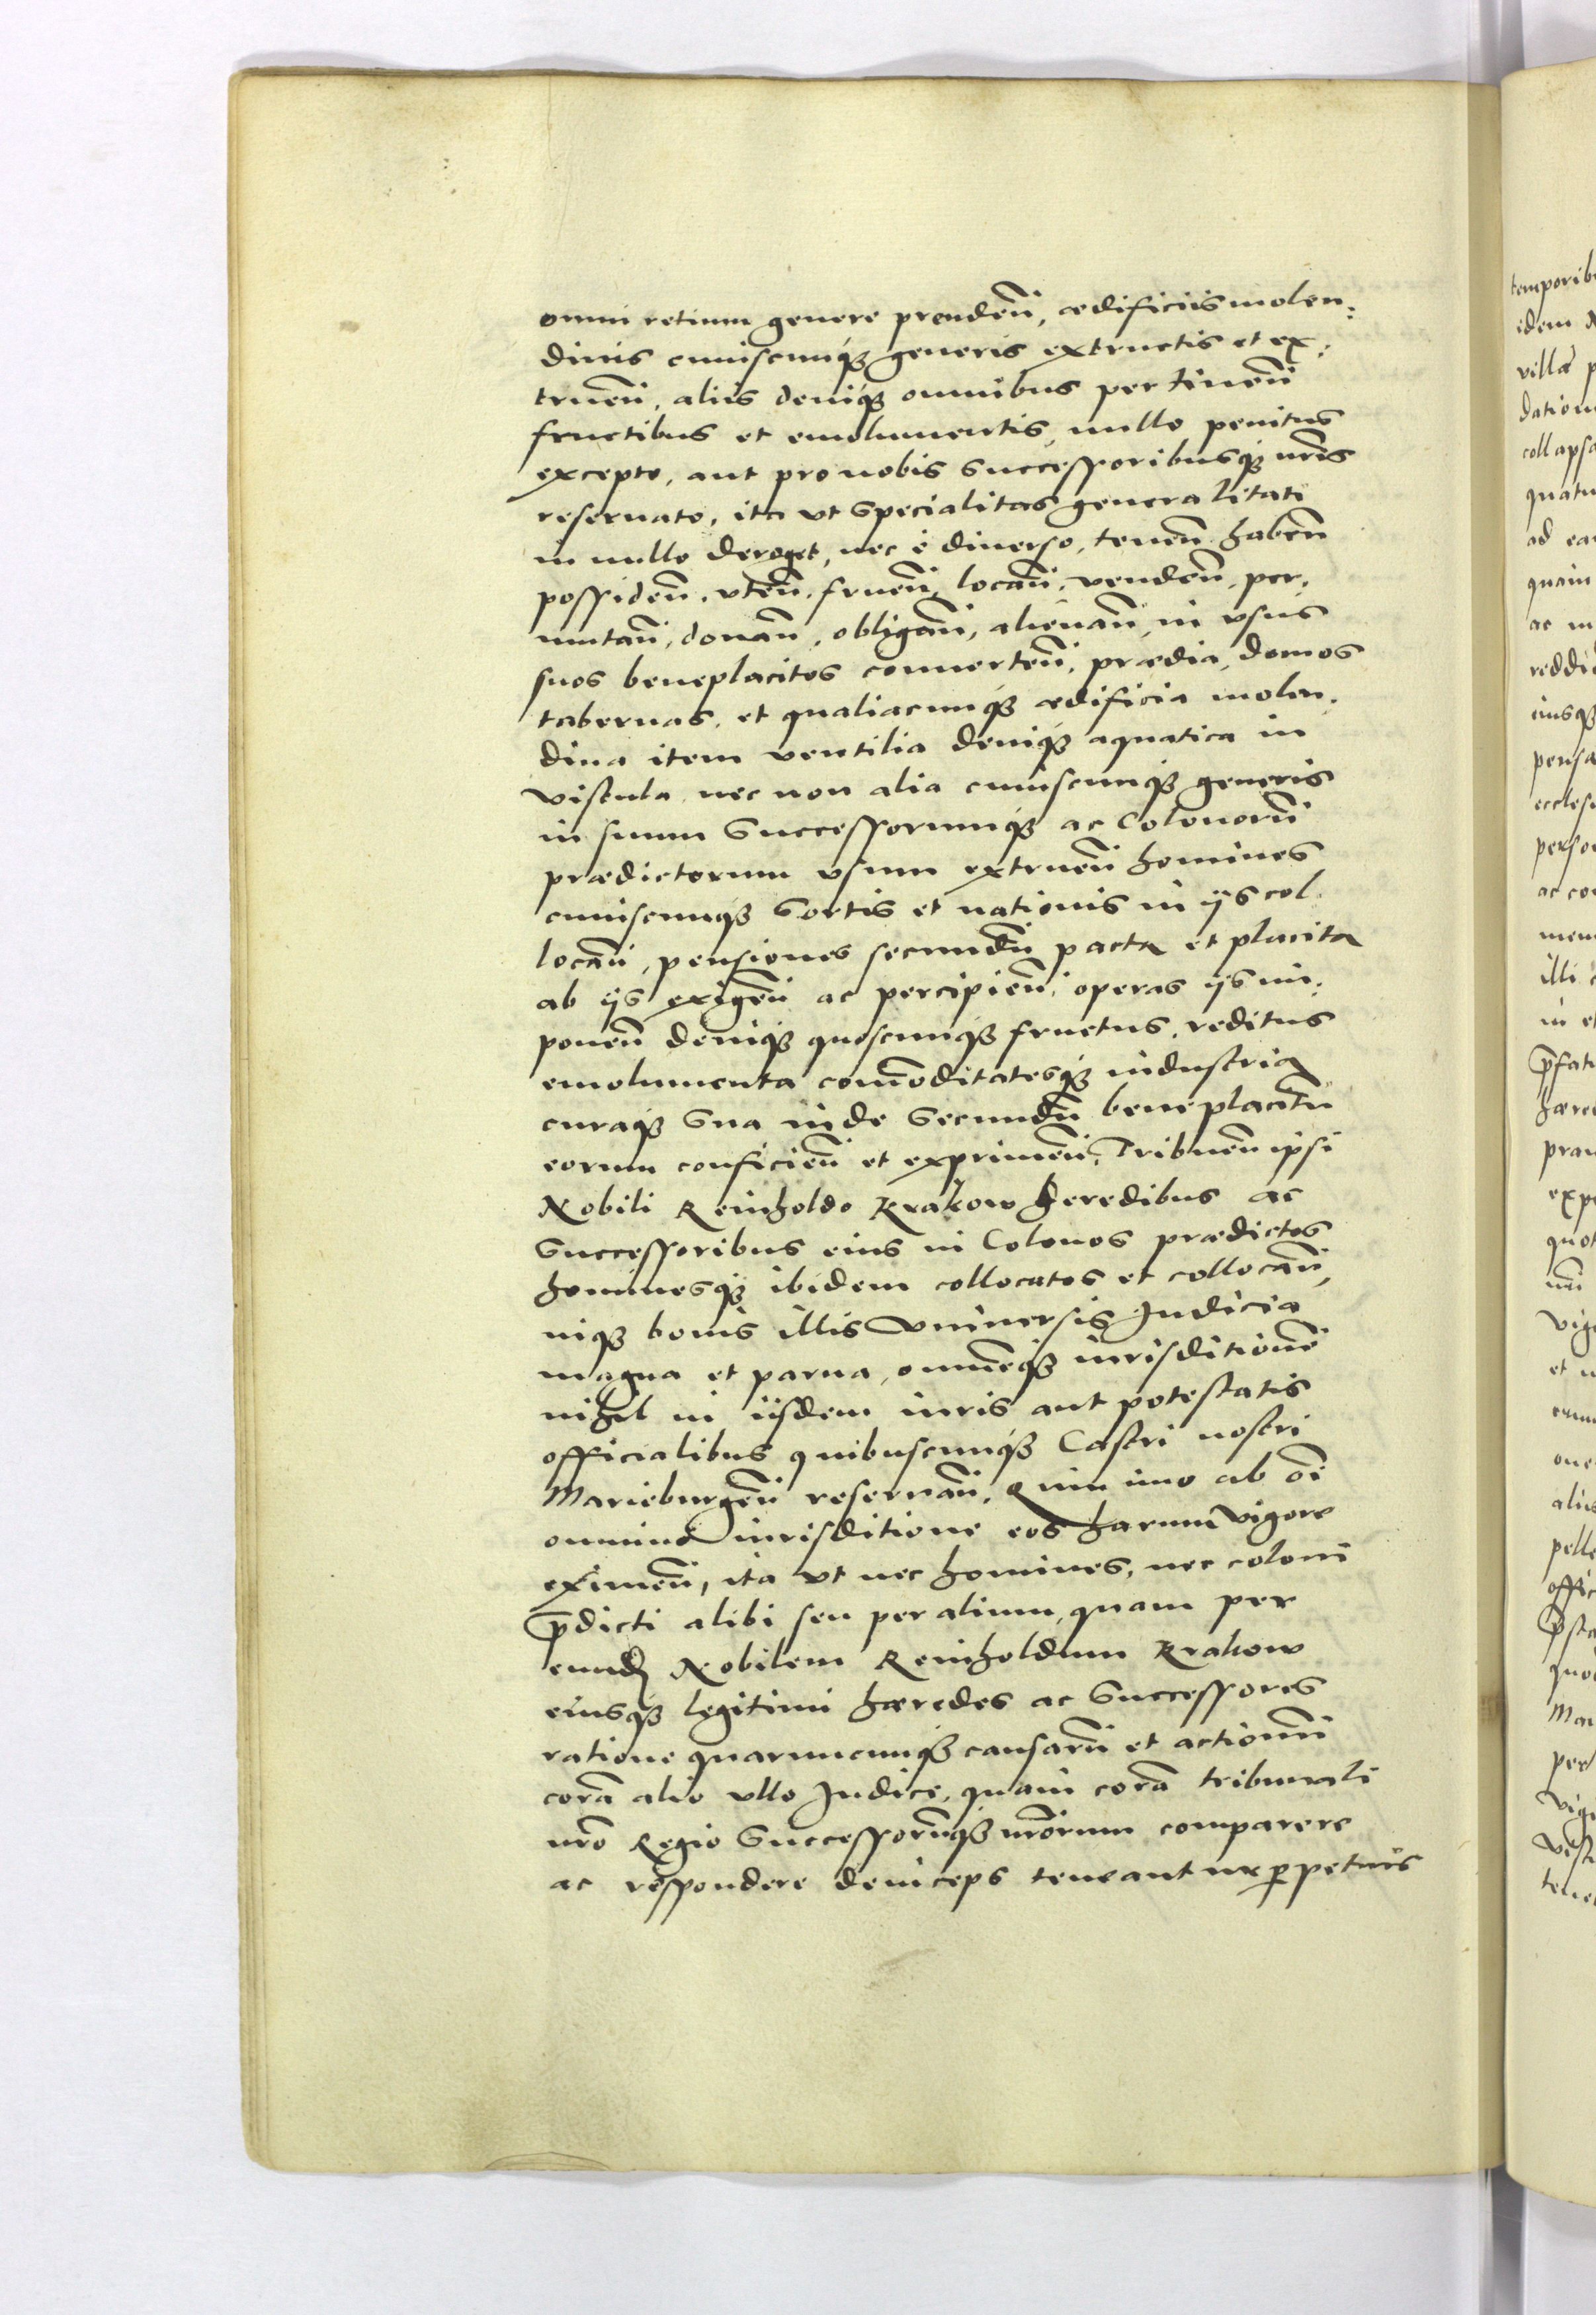 omni retium genere prendeñ, ædificiis molen,
dinis cuiuscunq3 generis extructis et ex,
trueñ, aliis deniq3 omnibus pertineñ
fructibus et emolumentis, nullo penitus
excepto, aut pro nobis Successoribusq3 nr̃is
reseruato, ita vt Specialitas generalitati
in nullo deroget, nec è diuerso, teneñ habeñ
possideñ, vteñ, frueñ, locañ, vendeñ, per,
mutañ, donañ, obligañ, alienañ, in vsus
suos beneplacitos conuerteñ, prædia, domos
tabernas, et qualiacunq3 ædificia molen,
dina item ventilia deniq3 aquatica in
vistula nec non alia cuiuscunq3 generis
in suum Successorumq3 ac Colonorũ
prædictorum vsum extrueñ homines
cuiuscunq3 Sortis et nationis in ijs col
locañ, pensiones secundũ pacta et placita
ab ijs exigeñ ac percipieñ, operas ijs im,
poneñ deniq3 quoscunq3 fructus, reditus
emolumenta com̃oditatesq3 industria
curaq3 Sua inde Secundũ beneplacitũ
eorum conficieñ et exprimeñ, Tribueñ ipsi
Nobili Reinholdo Krakow heredibus ac
Successoribus eius in Colonos prædictos
hominesq3 ibidem collocatos et collocañ,
inq3 bonis illis vniuersis Iudicia
magna et parua, omnẽq3 iurisditionẽ
nihil in iisdem iuris aut potestatis
officialibus quibuscunq3 Castri nostri
Marieburgeñ reseruañ, Quin imo ab oĩ
omnino iurisditione eos harum vigore
eximeñ, ita vt nec homines, nec coloni
p̃dicti alibi seu per alium, quam per
eund Nobilem Reinholdum Krakow
eiusq3 legitimi hæredes ac Successores
ratione quarumcunq3 causarũ et actionũ
corã alio vllo Iudice, quam corã tribunali
nr̃o Regio Successorũq3 nr̃orum comparere
ac respondere deinceps teneantur p̱petuis